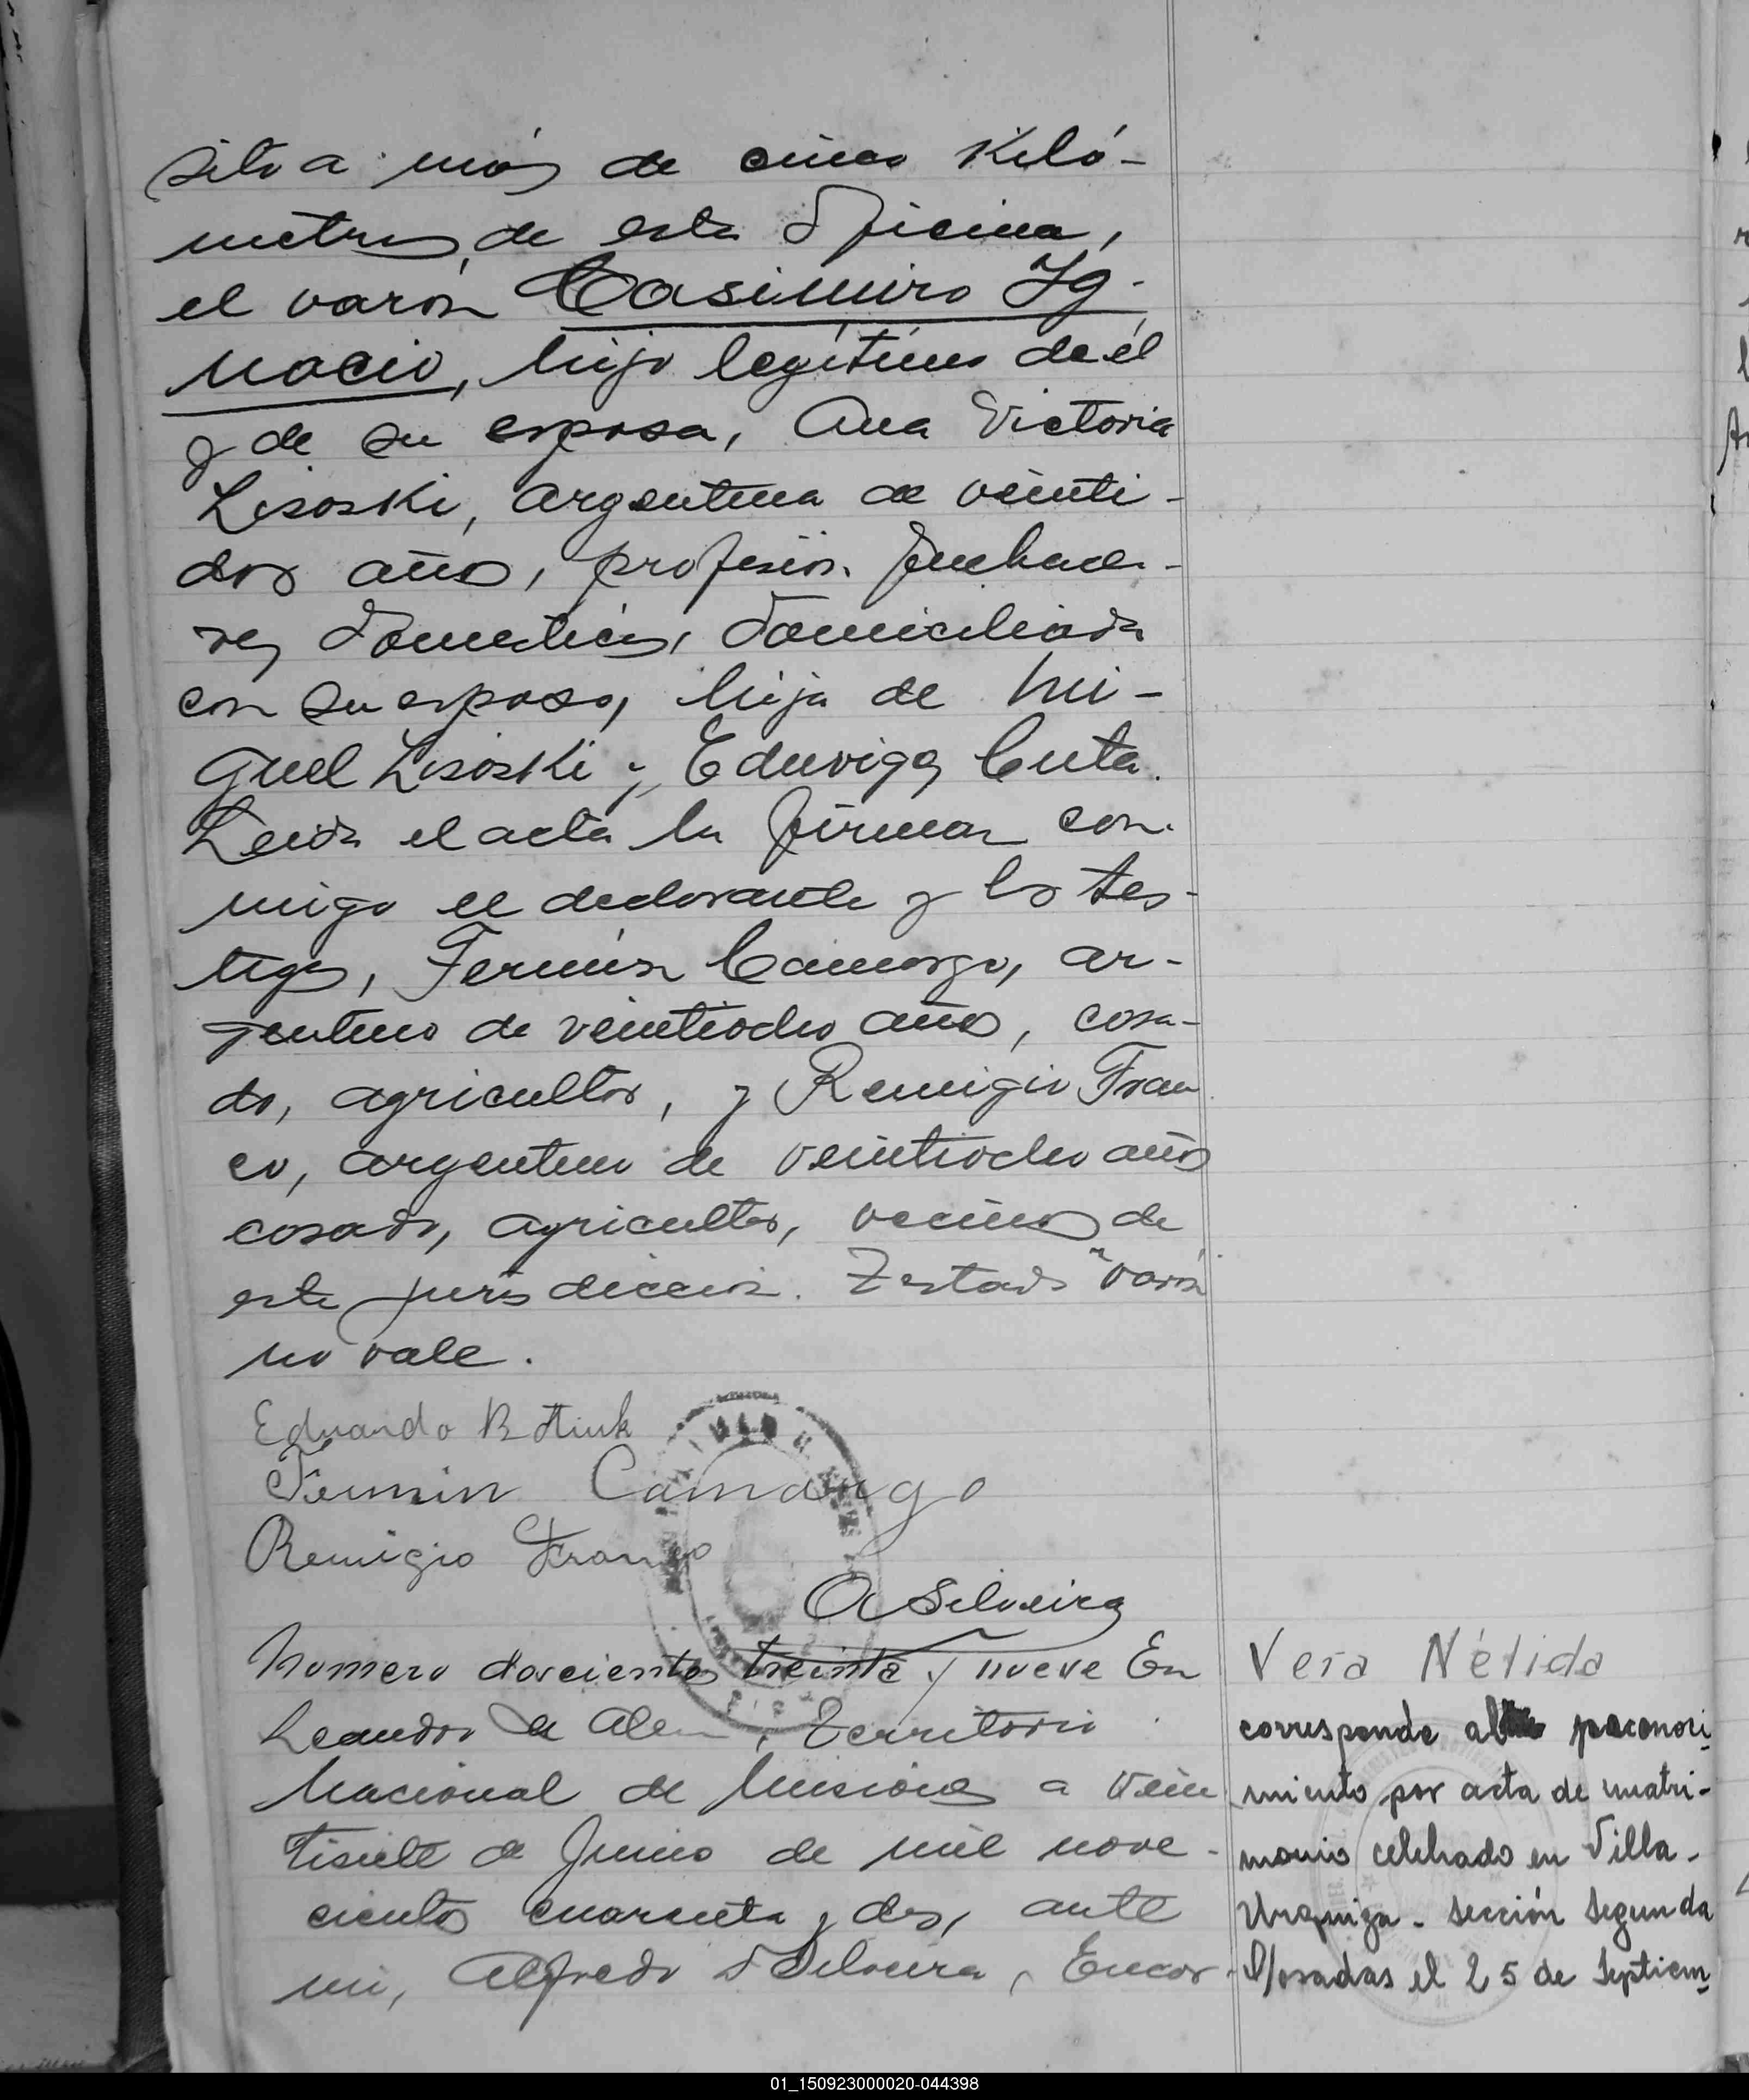 sito a más de cinco Kiló-
metros de esta Oficina,
el varón Casimiro Ig-
nacio, hijo legítimo de él
y de su esposa, Ana Victoria
Lisoski, argentina de veinti-
dos años, profesión quehace-
res domesticos, domiciliada
con su esposo, hija de Mi-
guel Lisoski y Eduviges Cuta.
Leida el acta la firman con-
migo el declarante y los tes-
tigos, Fermín Camargo, ar-
gentino de veintiocho años, casa-
do, agricultor, y Remigio Fran
co, argentino de veintiocho años
casado, agricultor, vecinos de
esta jurisdicción. Testado "varón
no vale.
Eduardo
Fermin Camargo
Remigio Franco
A Silveira
Numero doscientos treinta y nueve En
Leandro N Alem, Territorio
Nacional de Misiones a vein
tisiete de Junio de mil nove-
cientos cuarenta y dos, ante
mi, Alfredo O Silveira, Encar-
Vera Nélida
corresponde al reconoci
miento por acta de matri-
monio celebrado en Villa-
Urquiza - Sección Segunda
Posadas el 25 de Septiem
01_150923000020-044398